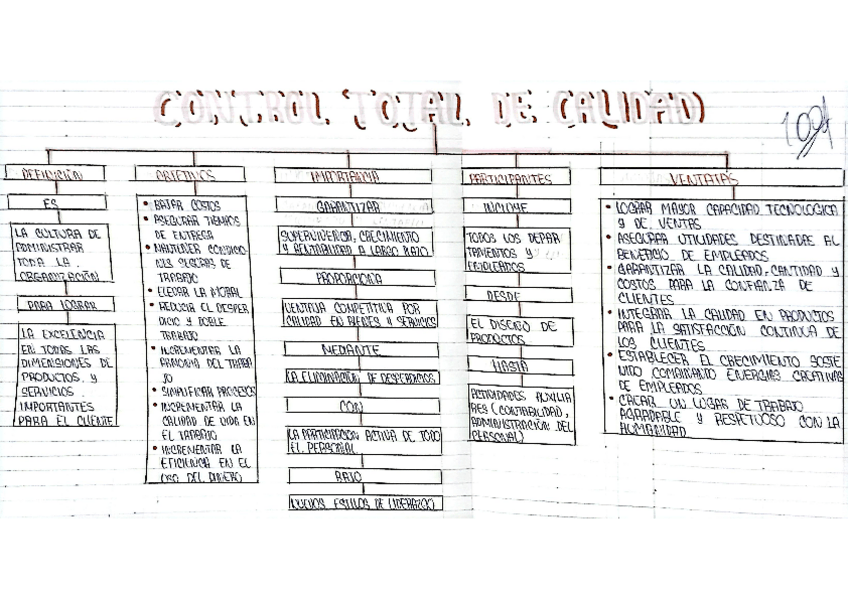 CONTROL TOTAL DE CALIDAD
100%
DEFINICIÓN
ES
LA CULTURA DE
ADMINISTRAR
TODA LA
ORGANIZACIÓN
PARA LOGRAR
LA EXCELENCIA
EN TODAS LAS
DIMENSIONES DE
PRODUCTOS Y
SERVICIOS
IMPORTANTES
PARA EL CLIENTE
OBJETIVOS
• BAJAR COSTOS
• ASEGURAR TIEMPOS
DE ENTREGA
• MANTENER CONDICIO
NES SEGURAS DE
TRABAJO
• ELEVAR LA MORAL
• REDUCIR EL DESPER
DICIO Y DOBLE
TRABAJO
• INCREMENTAR LA
ARMONIA DEL TRABA
JO
• SIMPLIFICAR PROCESOS
• INCREMENTAR LA
CALIDAD DE VIDA EN
EL TRABAJO
• INCREMENTAR LA
EFICIENCIA EN EL
USO DEL DINERO
IMPORTANCIA
GARANTIZAR
SUPERVIVENCIA, CRECIMIENTO
Y RENTABILIDAD A LARGO PLAZO
PROPORCIONA
VENTAJA COMPETITIVA POR
CALIDAD EN BIENES Y SERVICIOS
MEDIANTE
LA ELIMINACIÓN DE DESPERDICIOS
CON
LA PARTICIPACION ACTIVA DE TODO
EL PERSONAL
BAJO
NUEVOS ESTILOS DE LIDERAZGO
PARTICIPANTES
INCLUYE
TODOS LOS DEPAR
TAMENTOS Y
EMPLEADOS
DESDE
EL DISEÑO DE
PRODUCTOS
HASTA
ACTIVIDADES AUXILIA
RES (CONTABILIDAD,
ADMINISTRACIÓN DEL
PERSONAL)
VENTAJAS
• LOGRAR MAYOR CAPACIDAD TECNOLOGICA
Y DE VENTAS
• ASEGURAR UTILIDADES DESTINADAS AL
BENEFICIO DE EMPLEADOS
• GARANTIZAR LA CALIDAD, CANTIDAD Y
COSTOS PARA LA CONFIANZA DE
CLIENTES
• INTEGRAR LA CALIDAD EN PRODUCTOS
PARA LA SATISFACCIÓN CONTINUA DE
LOS CLIENTES
• ESTABLECER EL CRECIMIENTO SOSTE
NIDO COMBINANDO ENERGIAS CREATIVAS
DE EMPLEADOS
• CREAR UN LUGAR DE TRABAJO
AGRADABLE Y RESPETUOSO CON LA
HUMANIDAD